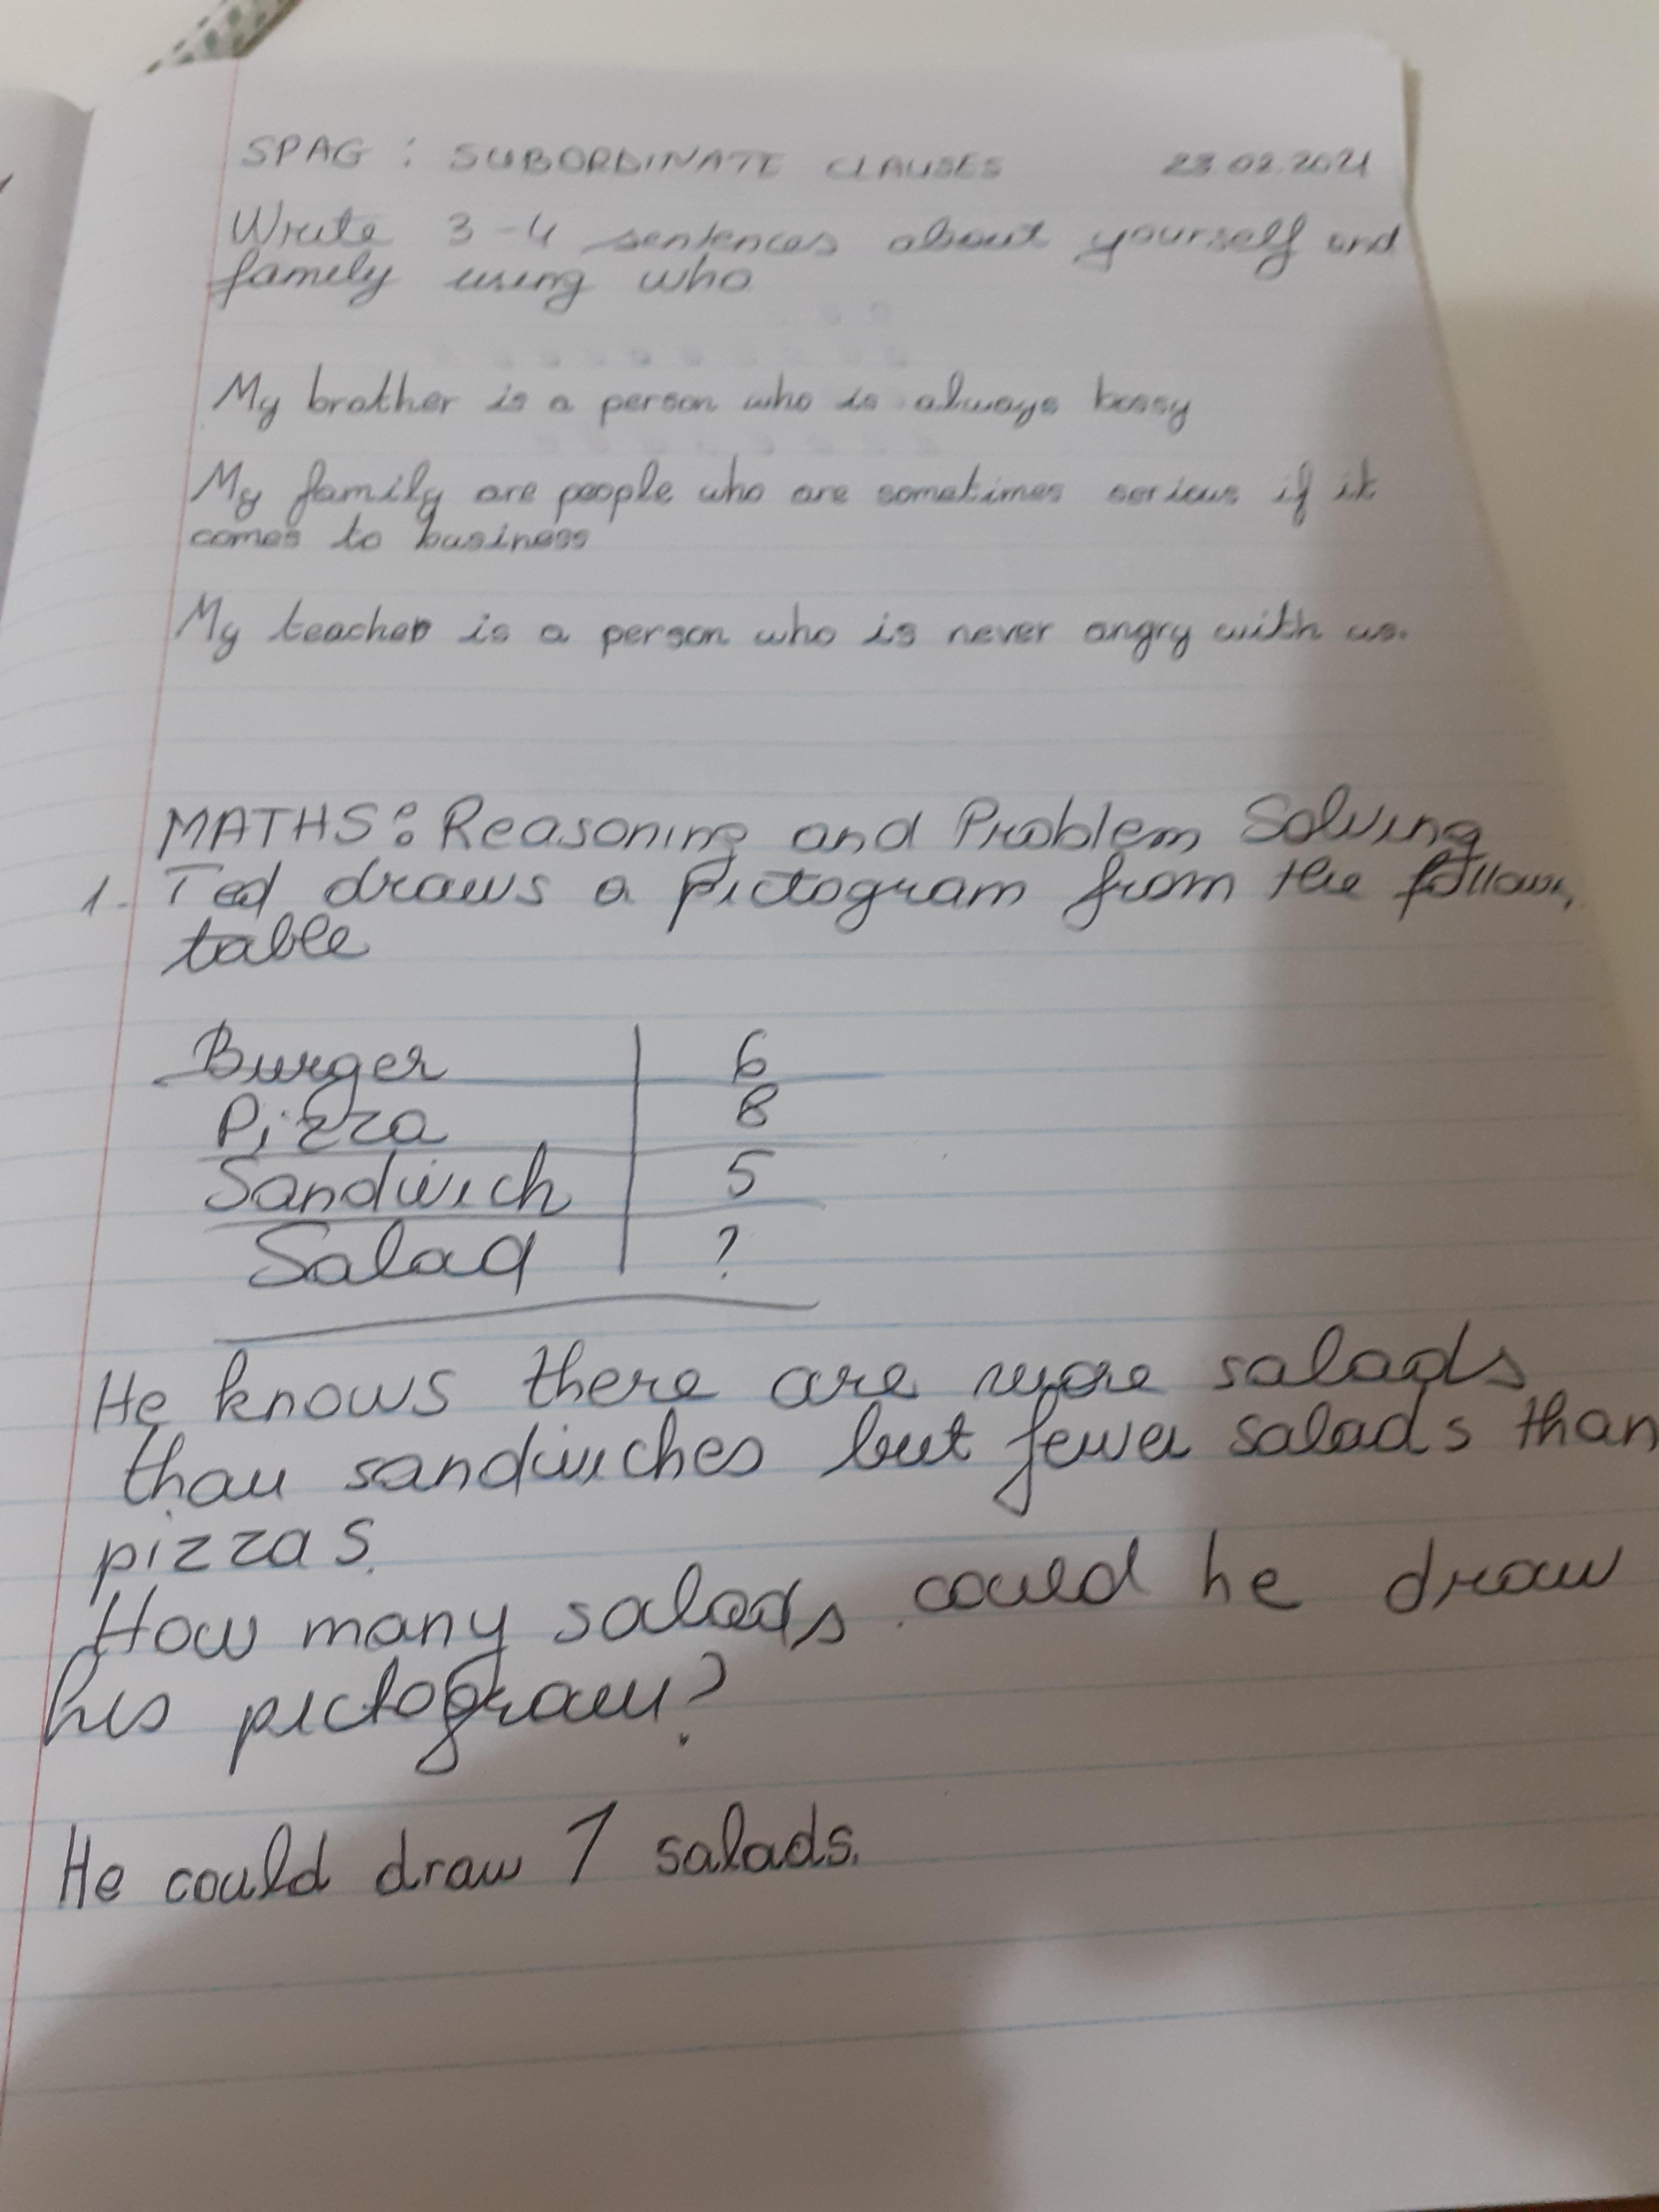 SPAG : SUBORDINATE CLAUSES 23.02.2021
Write 3-4 sentences about yourself and
family using who
My brother is a person who is always bossy
My family are people who are sometimes serious if it
comes to business
My teacher is a person who is never angry with us.
MATHS: Reasoning and Problem Solving
1. Ted draws a pictogram from the
table
Burger 6
Pizza 8
Sandwich 5
Salad ?
He knows there are more salads
than sandwiches but fewer salads than
pizzas.
How many salads could he draw
his pictogram?
He could draw 7 salads.